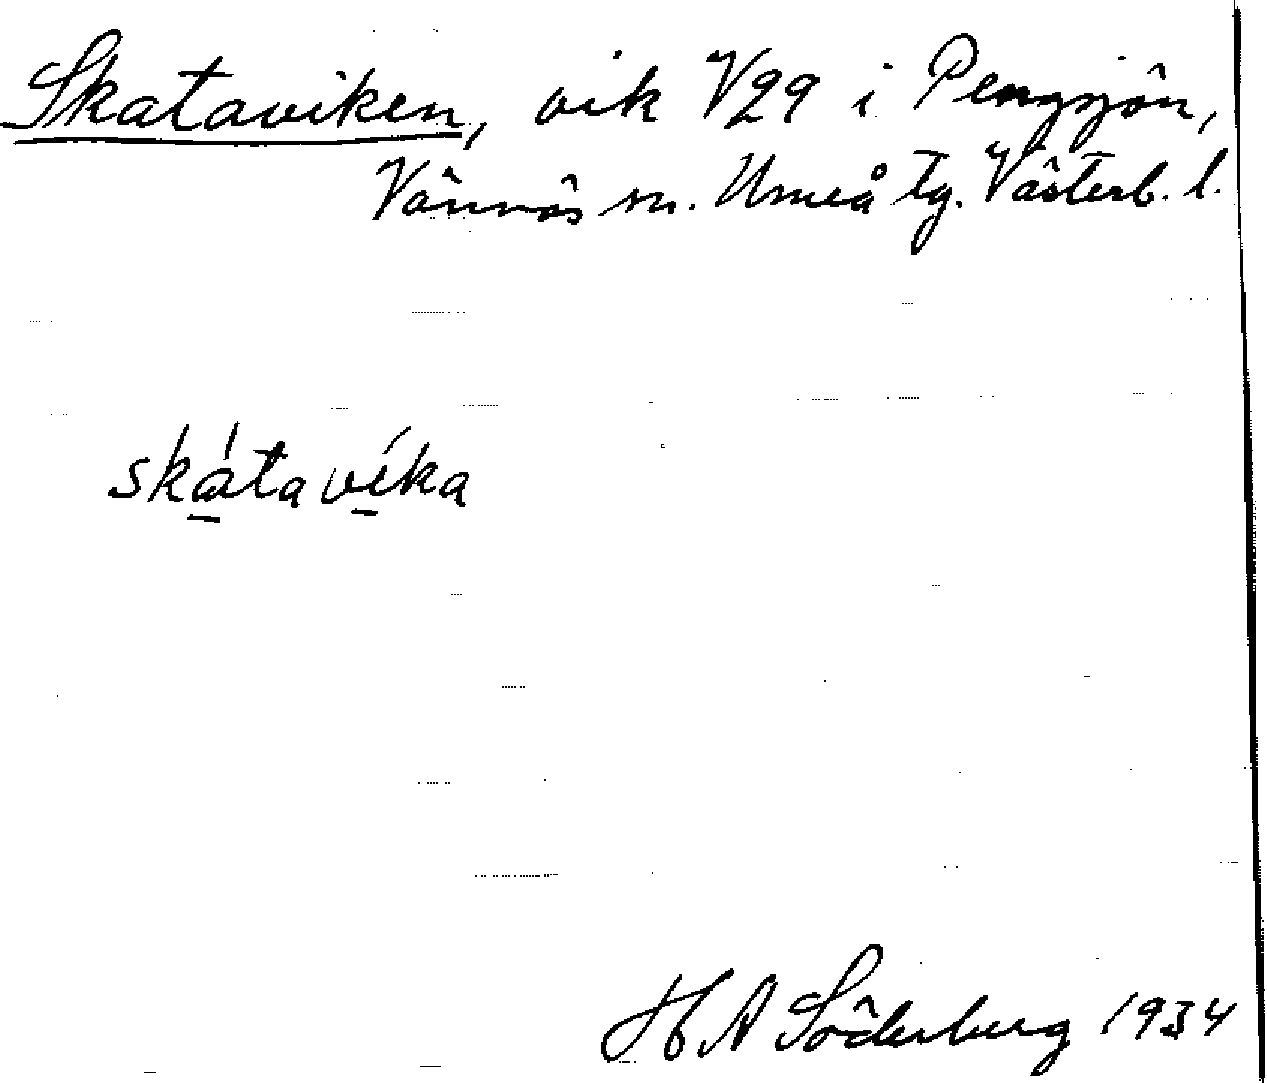 Skataviken, vik V29 i Pengsjön,
Vännäs sn. Umeå tg. Västerb. l.
skátavíka
H A Söderberg 1934